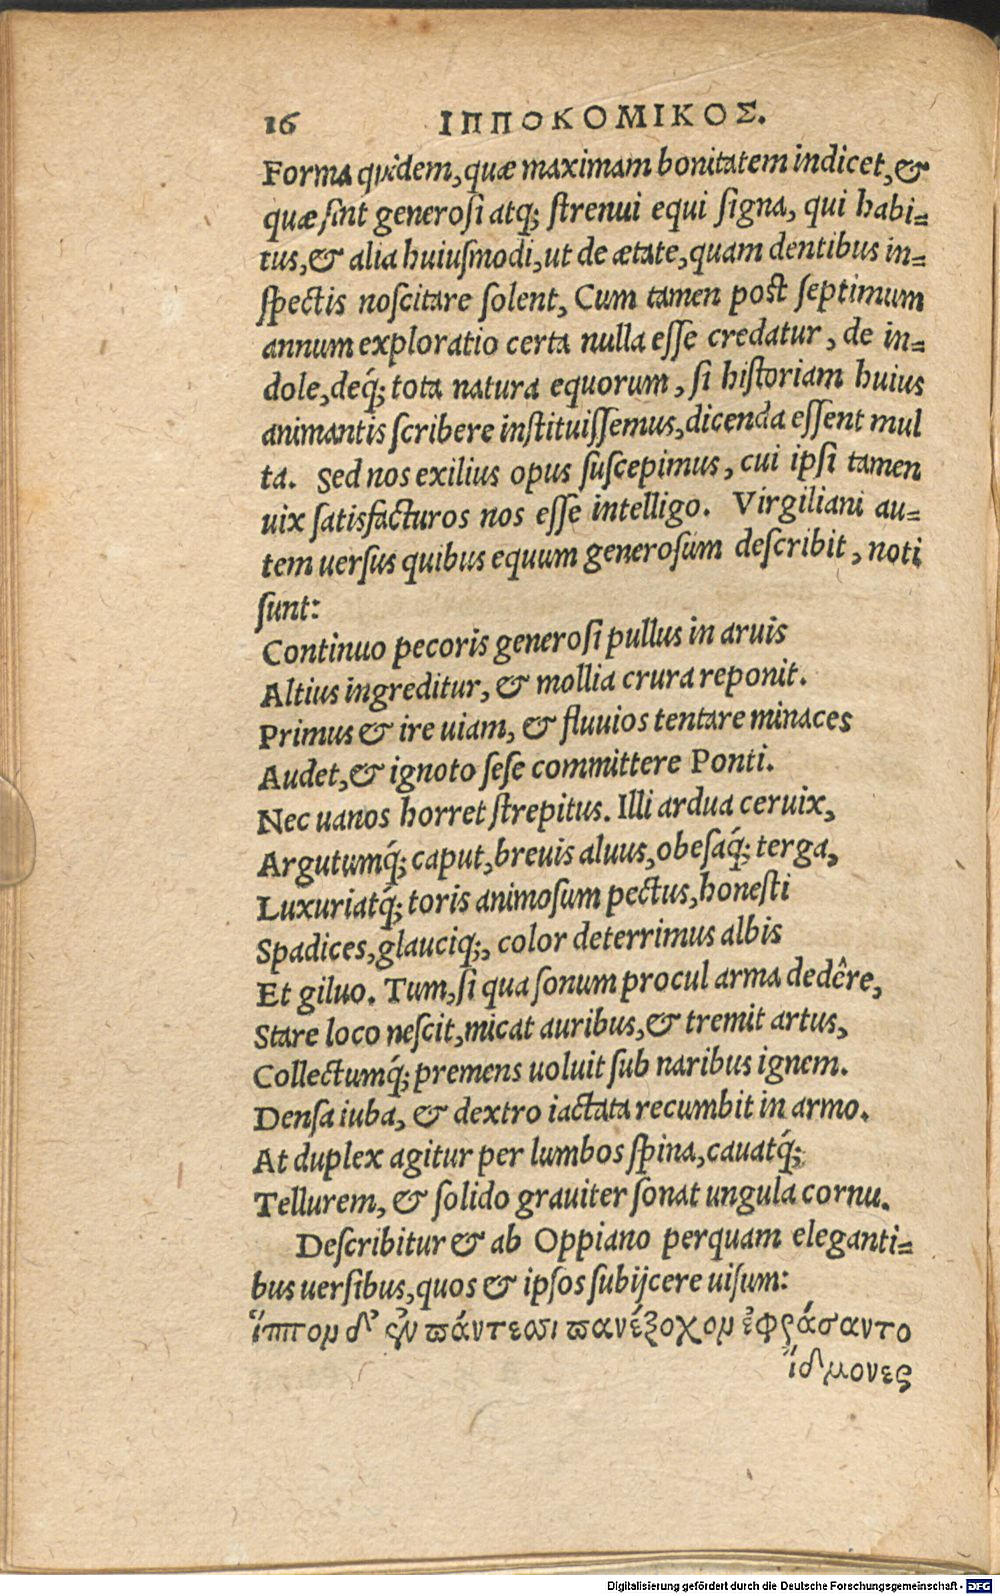 16 ΙΠΠΟΚΟΜΙΚΟΣ.
Forma quidem, quæ maximam bonitatem indicet, &
quæ ſint generoſi atq; ſtrenui equi ſigna, qui habi=
tus, & alia huiuſmodi, ut de ætate, quam dentibus in=
ſpectis noſcitare ſolent, Cum tamen poſt ſeptimum
annum exploratio certa nulla eſſe credatur, de in=
dole, deq́; tota natura equorum, ſi hiſtoriam huius
animantis ſcribere inſtituiſſemus, dicenda eſſent mul
ta. Sed nos exilius opus ſuſcepimus, cui ipſi tamen
uix ſatisfacturos nos eſſe intelligo. Virgiliani au=
tem uerſus quibus equum generoſum deſcribit, noti
ſunt:
Continuo pecoris generoſi pullus in aruis
Altius ingreditur, & mollia crura reponit.
Primus & ire uiam, & fluuios tentare minaces
Audet, & ignoto ſeſe committere Ponti.
Nec uanos horret ſtrepitus. Illi ardua ceruix,
Argutumq́; caput, breuis aluus, obeſaq́; terga,
Luxuriatq́; toris animoſum pectus, honeſti
Spadices, glauciq;, color deterrimus albis
Et giluo. Tum, ſi qua ſonum procul arma dedêre,
Stare loco neſcit, micat auribus, & tremit artus,
Collectumq́; premens uoluit ſub naribus ignem.
Denſa iuba, & dextro iactata recumbit in armo.
At duplex agitur per lumbos ſpina, cauatq́;
Tellurem, & ſolido grauiter ſonat ungula cornu.
Deſcribitur & ab Oppiano perquam eleganti=
bus uerſibus, quos & ipſos ſubijcere uiſum:
ἵππον δ' οὖν πάντεσσι πανέξοχον ἐφράσαντο
ἴδμονες
Digitalisierung gefördert durch die Deutsche Forschungsgemeinschaft - DFG